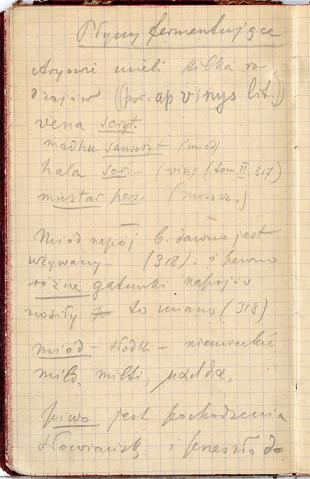 Płyny fermentujące
Aryowie mieli kilka ro-
dzajów ((por. ap vinys lit.))
vena scryt.
madhu sanscrt (miód)
hala scr. (vin) (tom II. 317)
mustar pers. (moszcz.)
Miód napój b. dawno jest
używany (318). i pewno
różne gatunki napojów
nosiły to miano (318)
miód - słodk - niemieckie
mild, milti,
piwo jest pochodzenia
słowiańsk i przeszło do